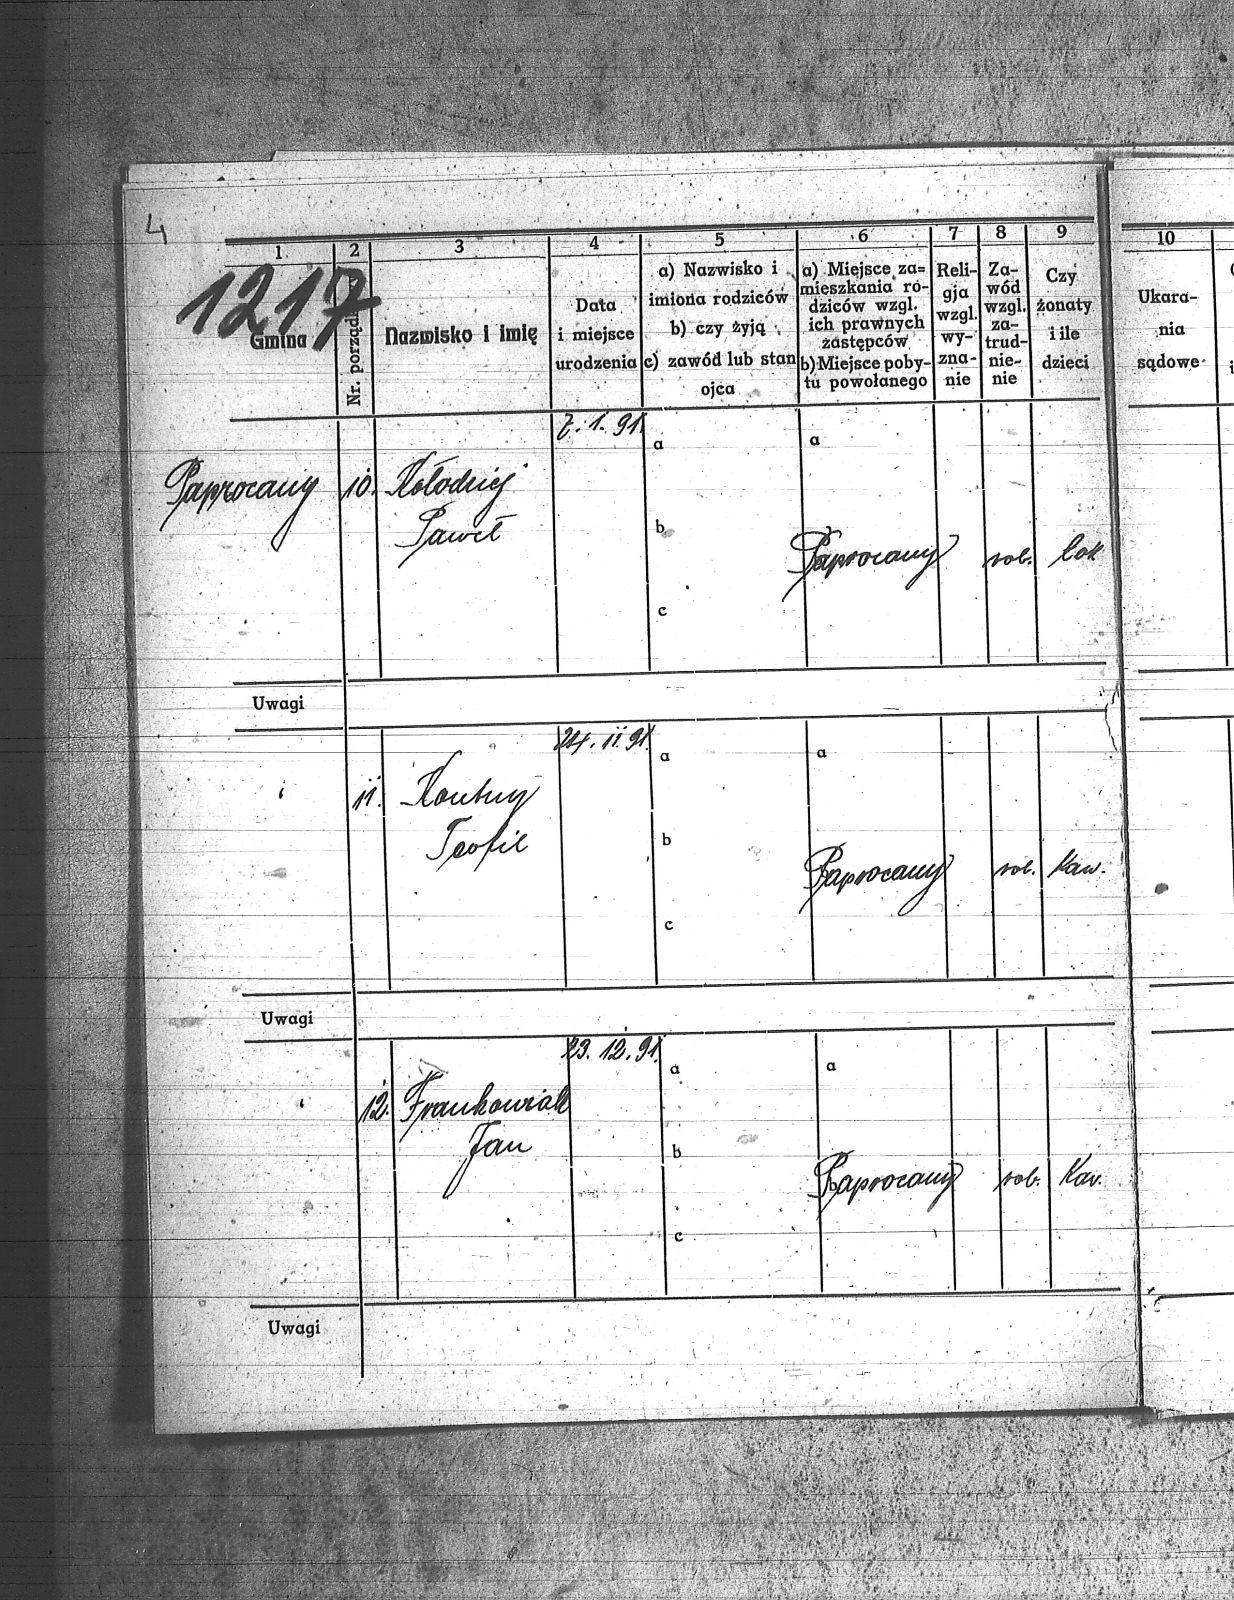 4
1217
1 2 3 4 5 6 7 8 9 10
Gmina
Nr. porządk
Nazwisko i imię
Data
i miejsce
urodzenia
a) Nazwisko i
imiona rodziców
b) czy żyją
c) zawód lub stan
ojca
a) Miejsce za=
mieszkania ro-
dziców wzgl.
ich prawnych
zastępców
b) Miejsce poby-
tu powołanego
Reli-
gja
wzgl.
wy-
zna-
nie
Za-
wód
wzgl.
za-
trud-
nie-
nie
Czy
żonaty
i ile
dzieci
Ukara-
nia
sądowe
7.1.91.
a a
Paprocany 10. Kołodziej
Paweł
b
Paprocany rob.
c
Uwagi
24.11.91.
a a
11. Kontny
Teofil
b
Paprocany rob. Kaw.
c
Uwagi
23.12.91.
a a
12. Frankowiak
Jan
b
Paprocany rob. Kav.
c
Uwagi